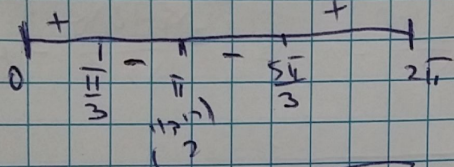 + - - +
0 π/3 π 5π/3 2π
?